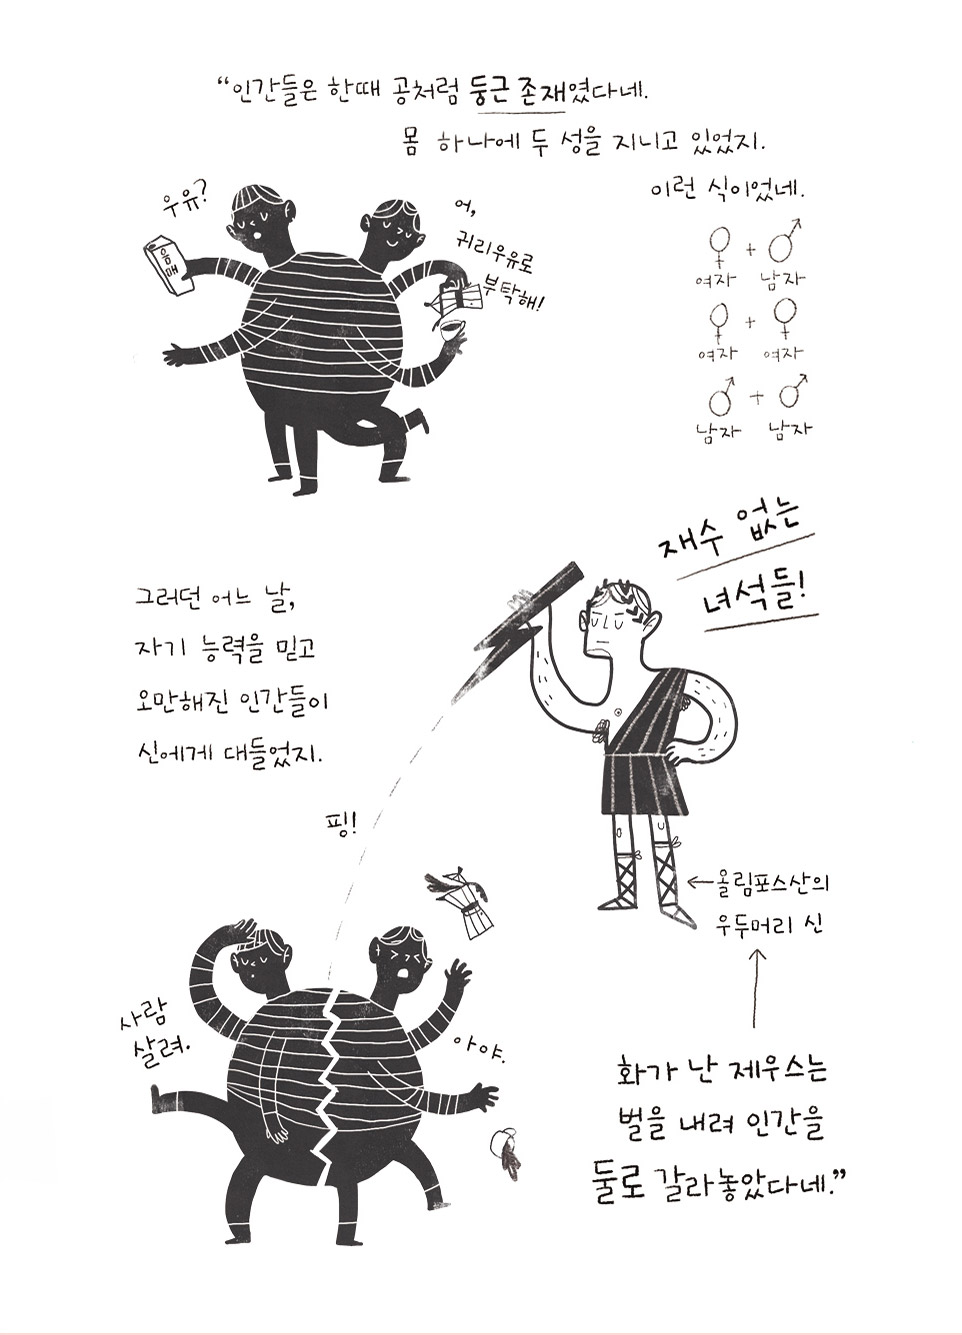 “인간들은 한때 공처럼 둥근 존재였다네.
몸 하나에 두 성을 지니고 있었지.
이런 식이었네.
우유?
음매
어,
귀리우유로
부탁해!
♀ + ♂
여자 남자
♀ + ♀
여자 여자
♂ + ♂
남자 남자
재수 없는
녀석들!
그러던 어느 날,
자기 능력을 믿고
오만해진 인간들이
신에게 대들었지.
핑!
←올림포스산의
우두머리 신
사람
살려.
아야.
화가 난 제우스는
벌을 내려 인간을
둘로 갈라놓았다네.”